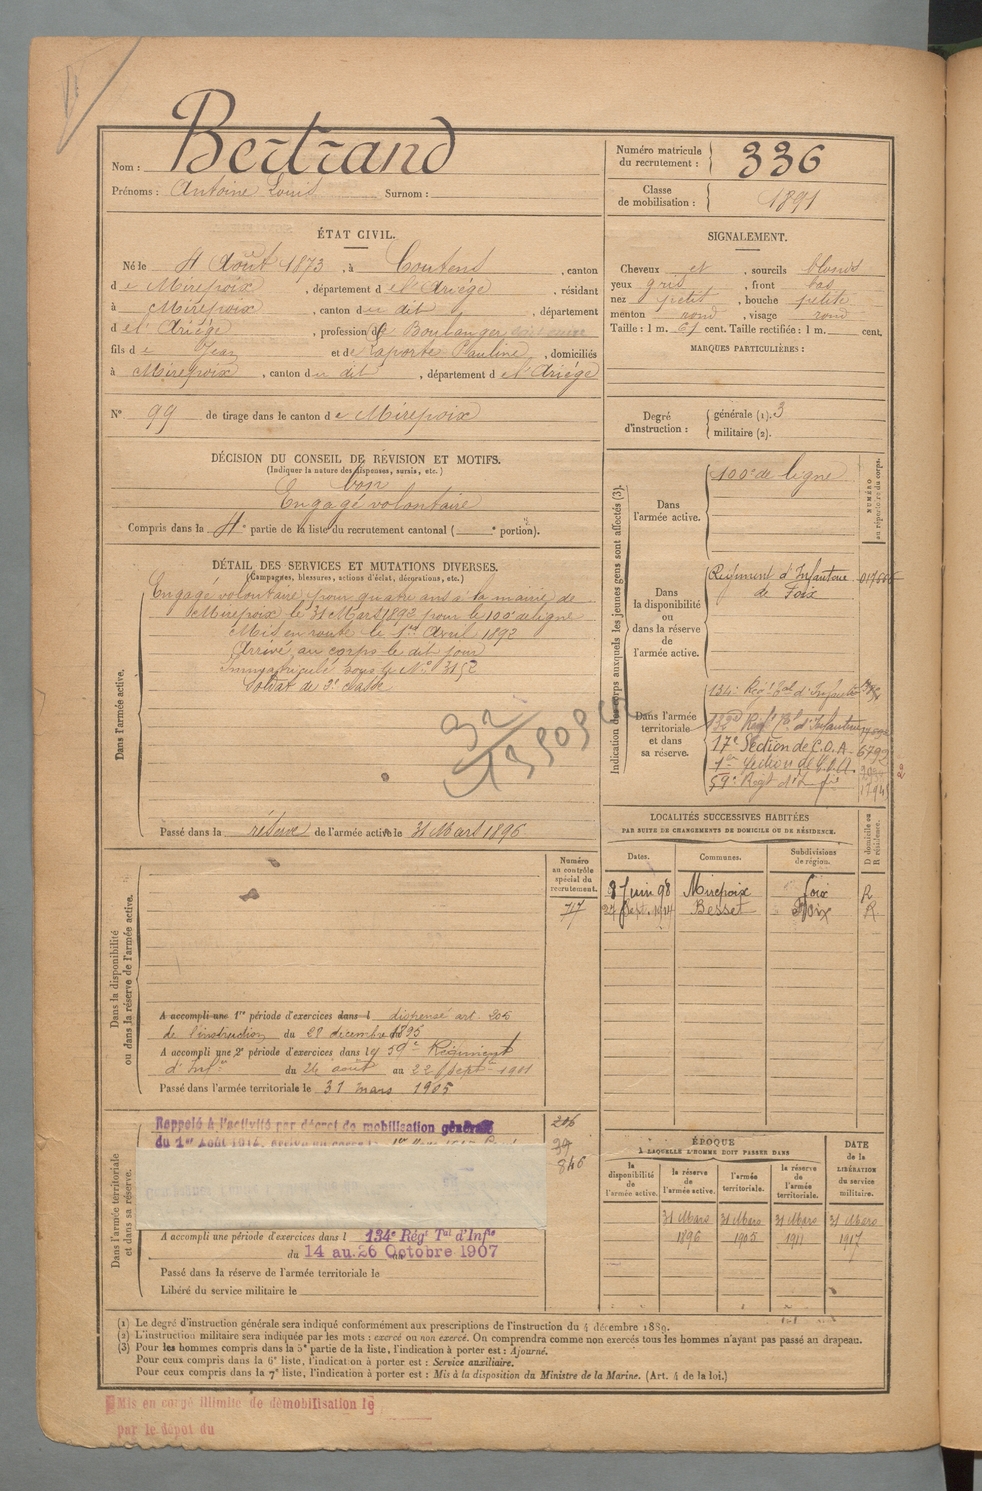 Nom : Bertrand
Prénoms : Antoine Louis Surnom :
Numéro matricule du recrutement : 336
Classe de mobilisation : 1891
ÉTAT CIVIL.
Né le 4 Août 1873, à Coutens, canton
de Mirepoix, département de l'Ariège, résidant
à Mirepoix, canton du dit, département
de l'Ariège, profession de Boulanger
fils de Jean et de Laporte Pauline, domiciliés
à Mirepoix, canton du dit, département de l'Ariège
N° 99 de tirage dans le canton de Mirepoix
SIGNALEMENT.
Cheveux et, sourcils blonds
yeux gris, front bas
nez petit, bouche petite
menton rond, visage rond
Taille : 1 m. 61 cent. Taille rectifiée : 1 m. cent.
MARQUES PARTICULIÈRES :
Degré d'instruction : générale (1). 3
militaire (2).
DÉCISION DU CONSEIL DE RÉVISION ET MOTIFS.
(Indiquer la nature des dispenses, sursis, etc.)
bon
Engagé volontaire
Compris dans la 4e partie de la liste du recrutement cantonal ( e portion).
DÉTAIL DES SERVICES ET MUTATIONS DIVERSES.
(Campagnes, blessures, actions d'éclat, décorations, etc.)
Dans l'armée active.
Engagé volontaire pour quatre ans à la mairie de
Mirepoix le 31 Mars 1892 pour le 100e de ligne
Mis en route le 1er Avril 1892
Arrivé au corps le dit jour
Immatriculé sous le N° 3152
Soldat de 2e classe
Passé dans la réserve de l'armée active le 31 Mars 1896
Indication des corps auxquels les jeunes gens sont affectés (3).
NUMÉRO au répertoire du corps.
Dans l'armée active.
100e de ligne
Dans la disponibilité ou dans la réserve de l'armée active.
Régiment d'Infanterie
de Foix
Dans l'armée territoriale et dans sa réserve.
134e Régt Tal d'Infanterie
17e Section de C.O.A. 6792
1re Section de C.O.A.
59e Regt d'Inf
LOCALITÉS SUCCESSIVES HABITÉES
PAR SUITE DE CHANGEMENTS DE DOMICILE OU DE RÉSIDENCE.
Dates. Communes. Subdivisions de région. D domicile ou R résidence.
8 Juin 98 Mirepoix Foix R
27 Sept. 1914 Besset Foix R
Dans la disponibilité ou dans la réserve de l'armée active.
Numéro au contrôle spécial du recrutement.
717
A accompli une 1re période d'exercices dans l dispensé art. 206
de l'instruction du 28 décembre 1895
A accompli une 2e période d'exercices dans le 59e Régiment
d'Infie du 26 août au 22 septbre 1901
Passé dans l'armée territoriale le 31 mars 1905
Dans l'armée territoriale et dans sa réserve.
Rappelé à l'activité par décret de mobilisation générale
du 1er Août 1914,
206
39
846
A accompli une période d'exercices dans l 134e Régt Tal d'Infie
du 14 au 26 Octobre 1907
Passé dans la réserve de l'armée territoriale le
Libéré du service militaire le
ÉPOQUE
A LAQUELLE L'HOMME DOIT PASSER DANS
la disponibilité de l'armée active. la réserve de l'armée active. l'armée territoriale. la réserve de l'armée territoriale.
DATE de la LIBÉRATION du service militaire.
31 Mars 1896 31 Mars 1905 31 Mars 1911 31 Mars 1917
(1) Le degré d'instruction générale sera indiqué conformément aux prescriptions de l'instruction du 4 décembre 1889.
(2) L'instruction militaire sera indiquée par les mots : exercé ou non exercé. On comprendra comme non exercés tous les hommes n'ayant pas passé au drapeau.
(3) Pour les hommes compris dans la 5e partie de la liste, l'indication à porter est : Ajourné.
Pour ceux compris dans la 6e liste, l'indication à porter est : Service auxiliaire.
Pour ceux compris dans la 7e liste, l'indication à porter est : Mis à la disposition du Ministre de la Marine. (Art. 4 de la loi.)
Mis en congé illimité de démobilisation le
par le dépôt du